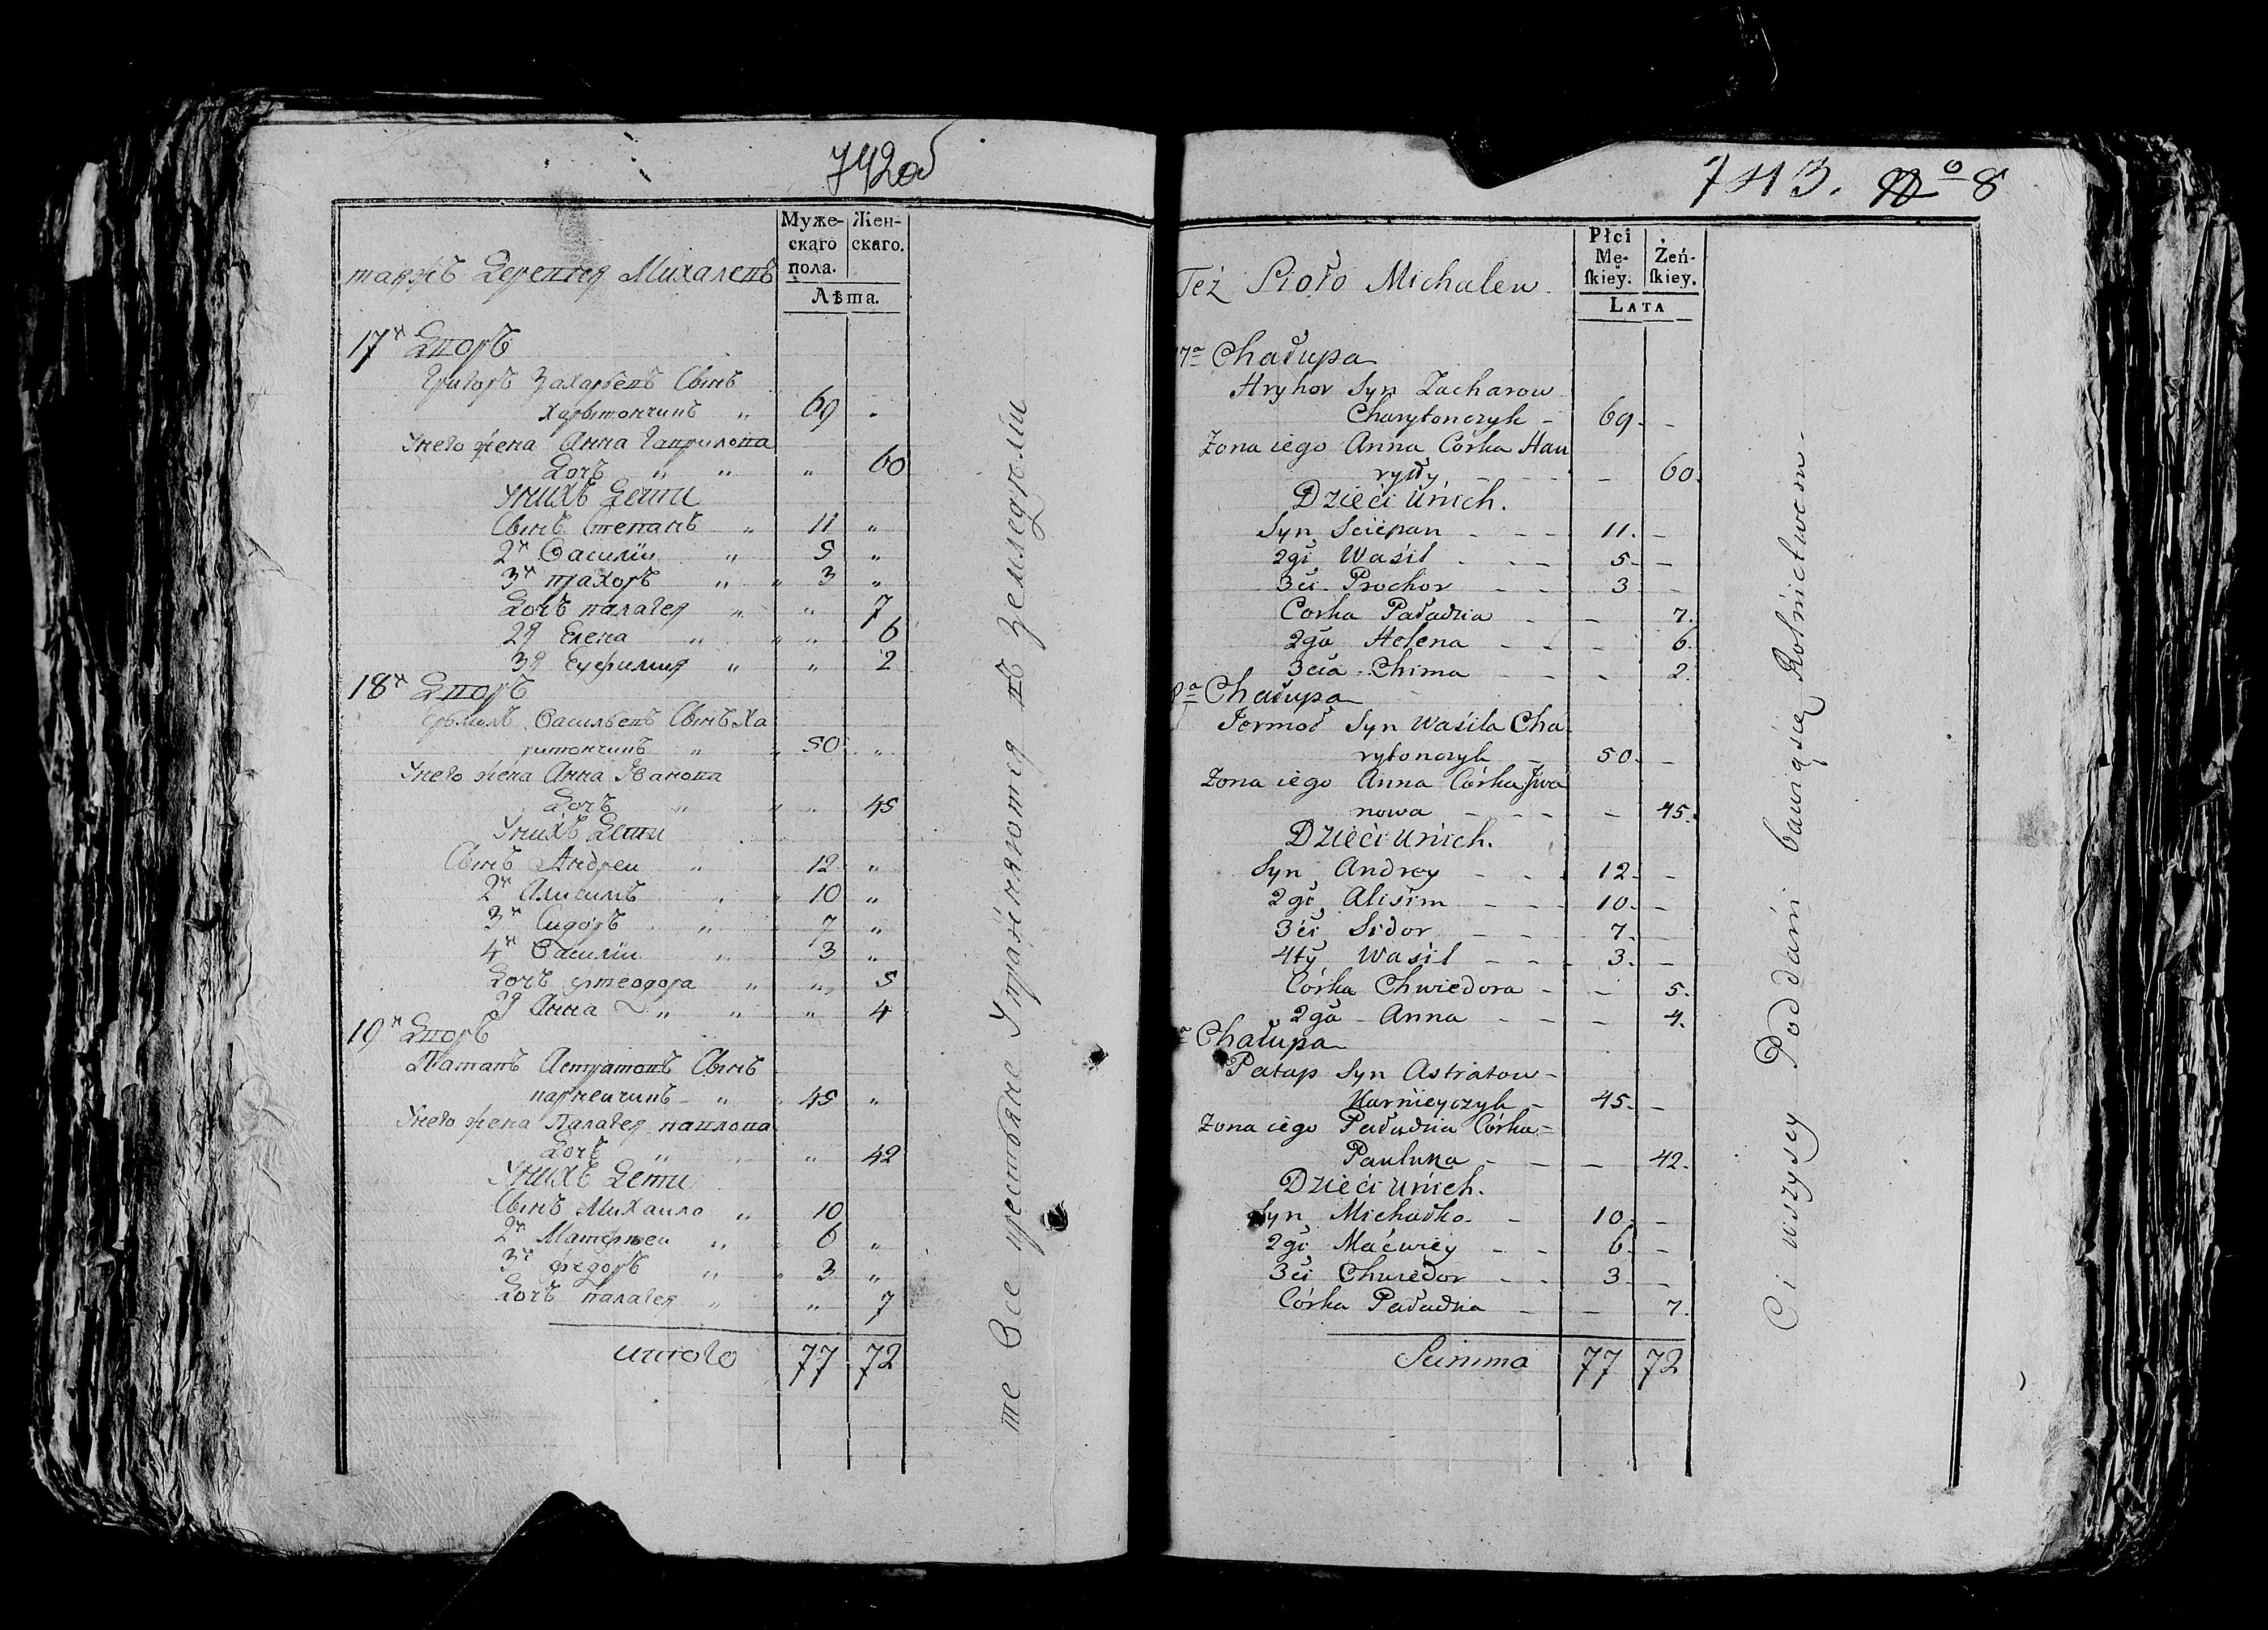 742об
Муже-
скаго
пола.
Жен-
скаго.
Лѣта.
таяжъ Деревня Михалевъ
17й Дворъ
Григоръ Захарьевъ Сынъ
Харытончикъ „ 69 „
Унего жена Анна Гаврилова
Дочъ „ „ „ 60
Унихъ Дети
Сынъ Степанъ „ 11 „
2й Василiи „ 5 „
3й прахоръ „ „ 3 „
Дочъ палагея „ „ 7
2я Елена „ „ „ 6
3я Еуфимия „ „ 2
18й Дворъ
Ермолъ Васильевъ Сынъ Ха
ритончикъ „ „ 50 „
Унего жена Анна Иванова
Дочъ „ „ „ 45
Унихъ Дети
Сынъ Андреи „ 12 „
2й Алисимъ „ „ 10 „
3й Сидоръ „ „ 7 „
4й Василiи „ 3 „
Дочъ фтеодора „ „ 5
2я Анна „ „ „ 4
19й Дворъ
Патапъ Астратовъ Сынъ
карнеичикъ „ „ 45 „
Унего жена Палагея павлова
Дочъ „ „ 42
Унихъ Дети
Сынъ Михаило „ 10
2й Матфеи „ „ 6 „
3й федоръ „ „ 3 „
Дочъ палагея „ „ 7
итого 77 72
те Все крестьяне Упражняютея въ Земледѣлiи
743. No 8
Płci
Mę-
ſkiey.
Żeń-
ſkiey.
LATA
Też Sioło Michalew
17a Chałupa
Hryhor Syn Zacharow
Charytonczyk - 69. -
Zona iego Anna Córka Hau
ryły - - - - 60.
Dzieci unich.
Syn Sciepan - - - 11. -
2gi Waśil - - - 5. -
3ci Prochor - - 3 -
Corka Paładzia - - 7.
2ga Helena - - - 6.
3cia Chima - - - 2.
8a Chałupa
Jermoł Syn Waśila Cha
rytonczyk - 50. -
Zona iego Anna Córka Jwa
nowa - - - - 45.
Dzieci unich.
Syn Andrey - - 12. -
2gi Alisim - - - 10. -
3ci Sidor - - 7. -
4ty Waśil - - - 3. -
Córka Chwiedora - - 5.
2ga Anna - - - 4.
a Chałupa
Patap Syn Astratow -
Karnieyczyk - 45. -
Zona iego Paładzia Córka -
Pauluka - - - 42.
Dzieci unich.
Syn Michałko - - 10. -
2gi Maćwiey - - 6. -
3ci Chwiedor - - 3. -
Córka Paładzia - - 7.
Summa 77 72
Ci wszyscy Poddani bawią się Rolnictwem -